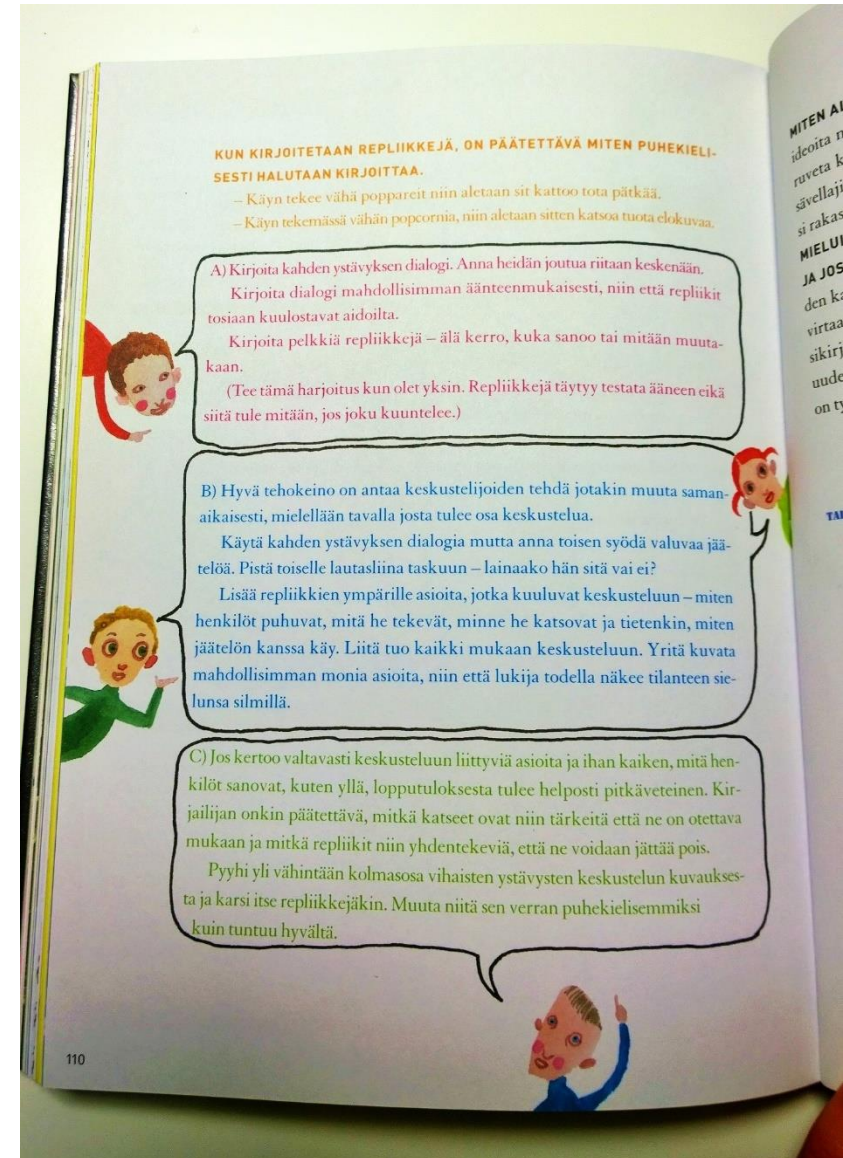 KUN KIRJOITETAAN REPLIIKKEJÄ, ON PÄÄTETTÄVÄ MITEN PUHEKIELI-
SESTI HALUTAAN KIRJOITTAA.
– Käyn tekee vähä poppareit niin aletaan sit kattoo tota pätkää.
– Käyn tekemässä vähän popcornia, niin aletaan sitten katsoa tuota elokuvaa.
A) Kirjoita kahden ystävyksen dialogi. Anna heidän joutua riitaan keskenään.
Kirjoita dialogi mahdollisimman äänteenmukaisesti, niin että repliikit
tosiaan kuulostavat aidoilta.
Kirjoita pelkkiä repliikkejä – älä kerro, kuka sanoo tai mitään muuta-
kaan.
(Tee tämä harjoitus kun olet yksin. Repliikkejä täytyy testata ääneen eikä
siitä tule mitään, jos joku kuuntelee.)
B) Hyvä tehokeino on antaa keskustelijoiden tehdä jotakin muuta saman-
aikaisesti, mielellään tavalla josta tulee osa keskustelua.
Käytä kahden ystävyksen dialogia mutta anna toisen syödä valuvaa jää-
telöä. Pistä toiselle lautasliina taskuun – lainaako hän sitä vai ei?
Lisää repliikkien ympärille asioita, jotka kuuluvat keskusteluun – miten
henkilöt puhuvat, mitä he tekevät, minne he katsovat ja tietenkin, miten
jäätelön kanssa käy. Liitä tuo kaikki mukaan keskusteluun. Yritä kuvata
mahdollisimman monia asioita, niin että lukija todella näkee tilanteen sie-
lunsa silmillä.
C) Jos kertoo valtavasti keskusteluun liittyviä asioita ja ihan kaiken, mitä hen-
kilöt sanovat, kuten yllä, lopputuloksesta tulee helposti pitkäveteinen. Kir-
jailijan onkin päätettävä, mitkä katseet ovat niin tärkeitä että ne on otettava
mukaan ja mitkä repliikit niin yhdentekeviä, että ne voidaan jättää pois.
Pyyhi yli vähintään kolmasosa vihaisten ystävysten keskustelun kuvaukses-
ta ja karsi itse repliikkejäkin. Muuta niitä sen verran puhekielisemmiksi
kuin tuntuu hyvältä.
110
MITEN
ideoita
ruveta
sävellaji
si rakas
JA JOS
den
virtaa
sikirj
uude
on